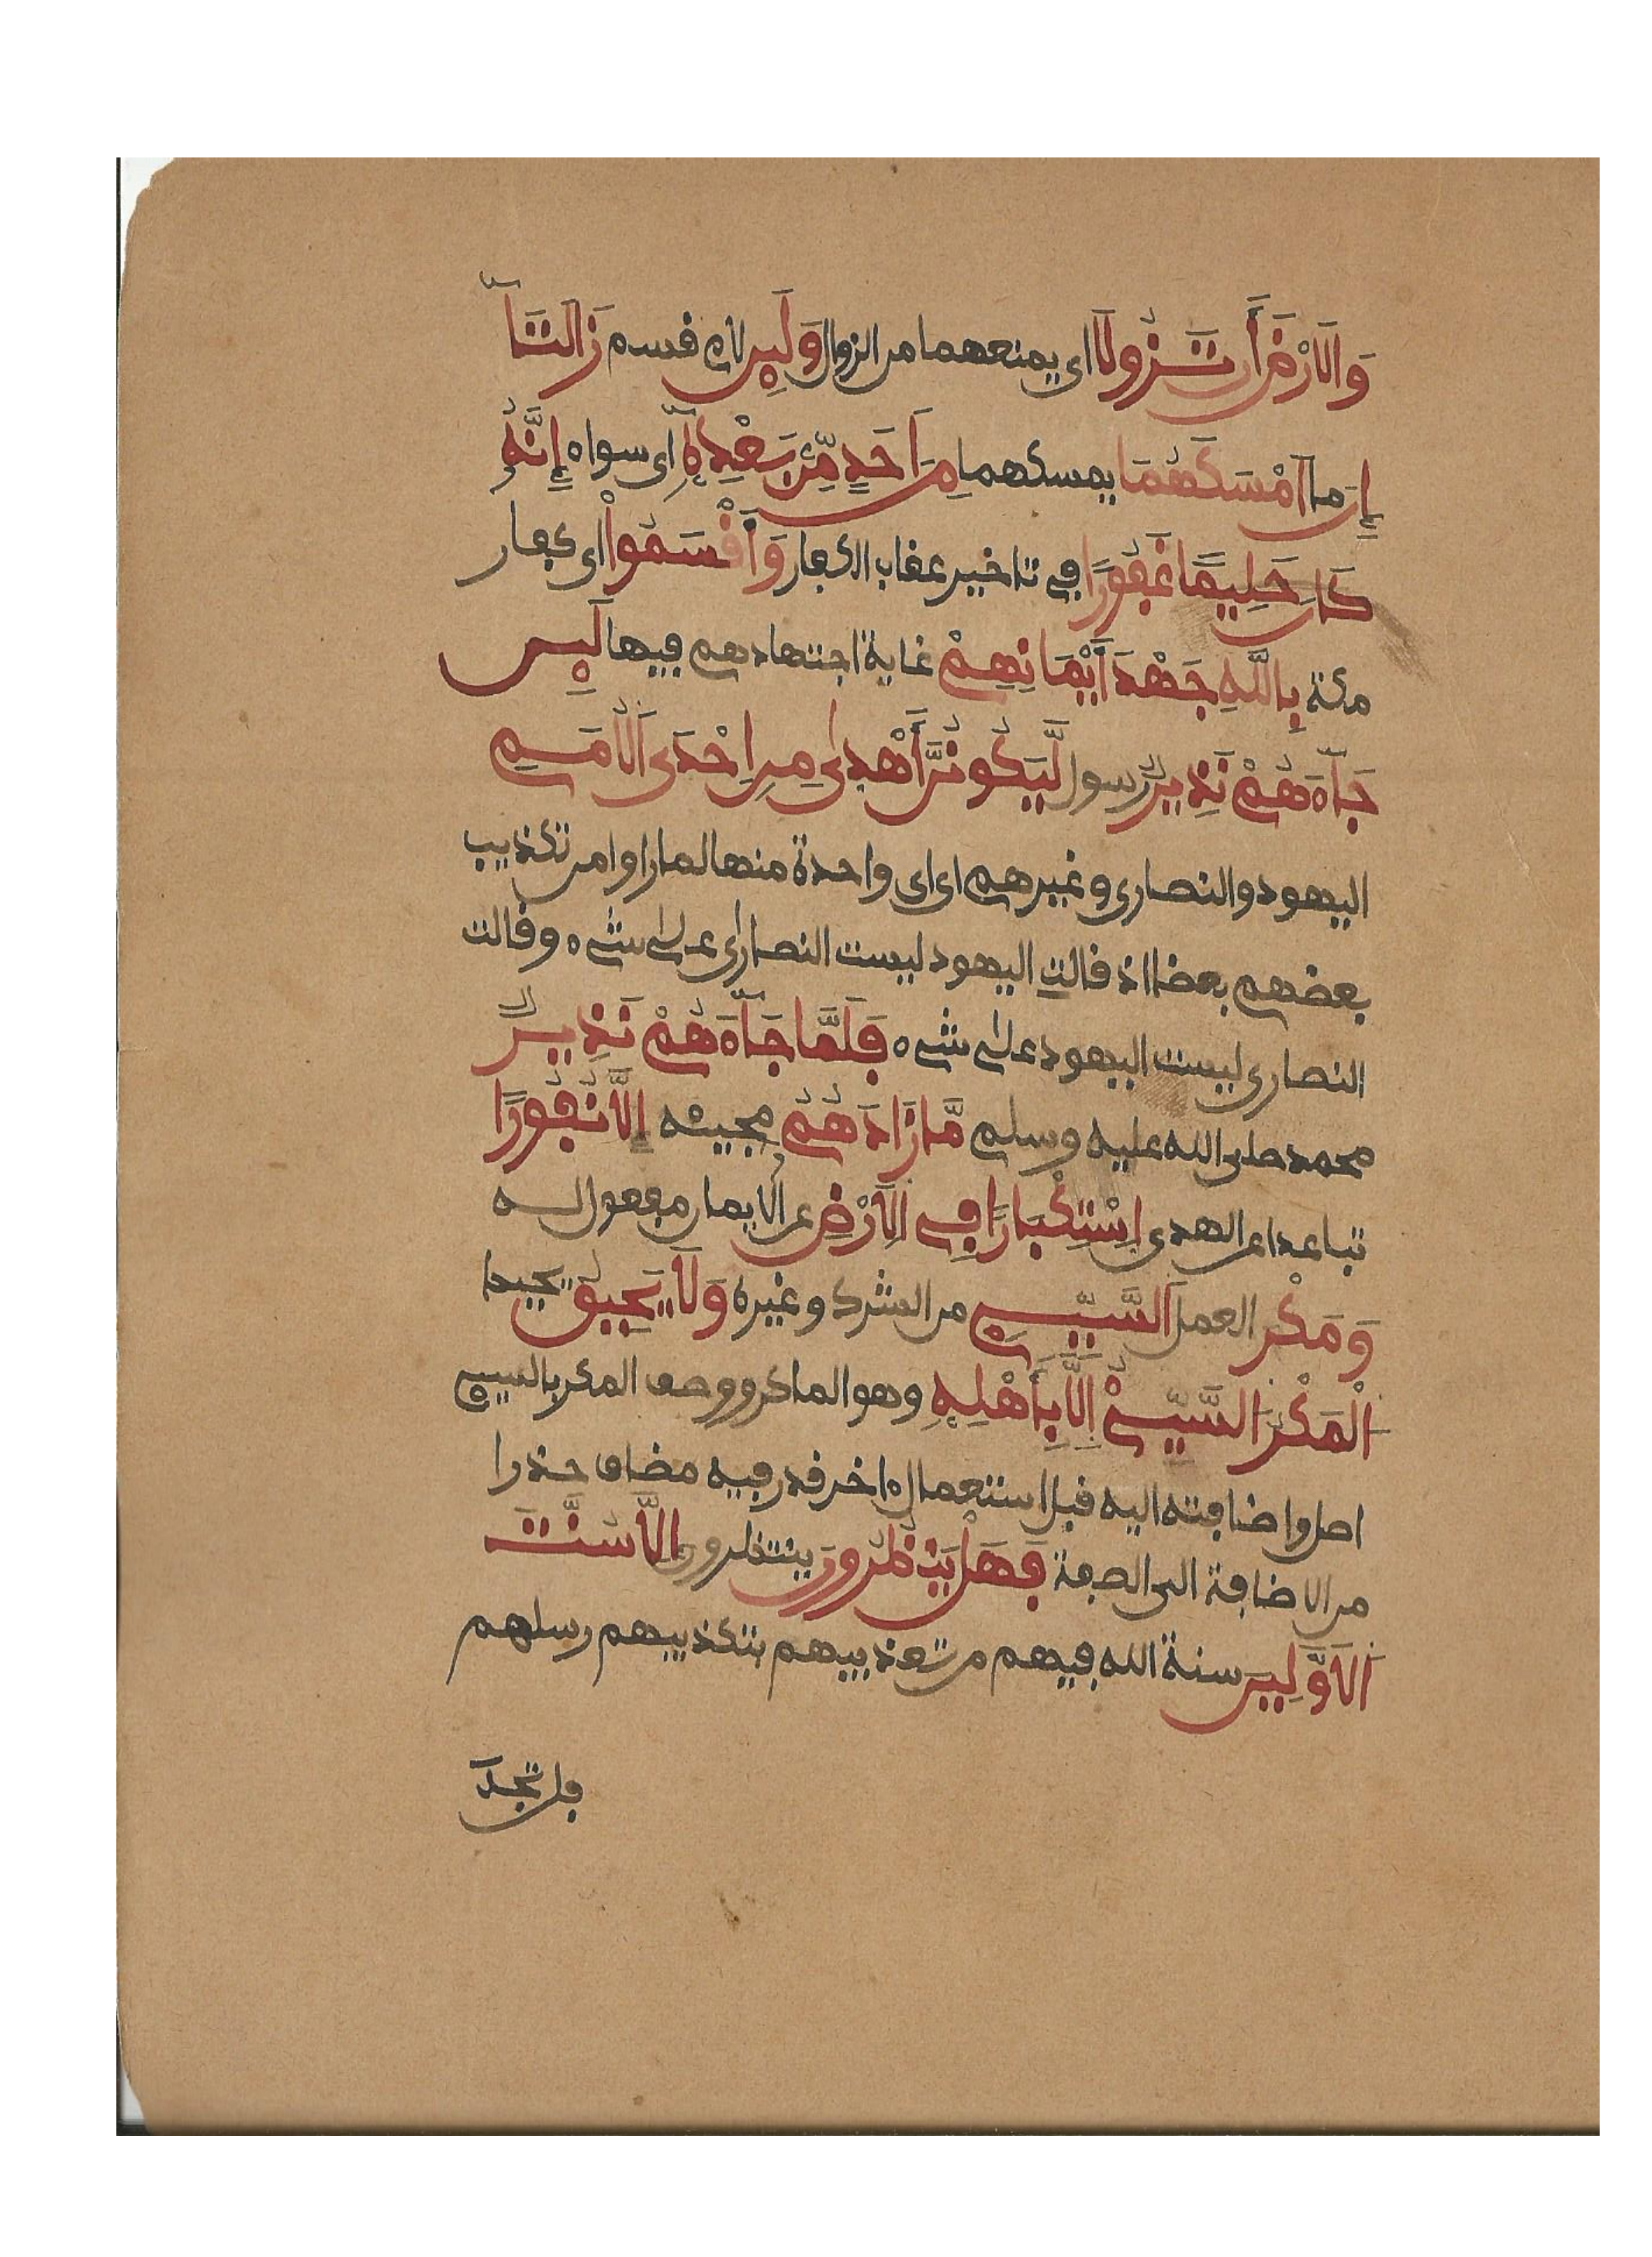 وَالَارْضَ أَن تَزُولَا اى يمنعهما من الزوال وَلَئِن لام قسم زَالَتَآ
إِن ما أَمْسَكَهُمَا يمسكهما مِنَ اَحَدٍ مِّنۢ بَعْدِهِۦٓ اى سواه إِنَّهُۥ
كَانَ حَلِيمًا غَفُورًا في تاخير عقاب الكفار وَأَقْسَمُوا اى كفار
مكة بِاللَّهِ جَهْدَ أَيْمَانِهِمْ غاية اجتهادهم فيها لَئِن
جَآءَهُمْ نَذِيرٌ رسول لَّيَكُونُنَّ أَهْدىٰ مِنِ احْدَى اَلُامَمِ
اليهود والنصارى وغيرهم اى اى واحدة منها لما راوا من تكذيب
بعضهم بعضا اذ قالت اليهود ليست النصارىٰ علىٰ شےء وقالت
النصارى ليست اليهود علىٰ شےء فَلَمَّا جَآءَهُمْ نَذِيرٌ
محمد صلى الله عليه وسلم مَّا زَادَهُمْ مجيئه إِلَّا نُفُورًا
تباعدا عن الهدى اِسْتِكْبَارًا فِى اِلَارْضِ عن الايمان مفعول له
وَمَكْرَ العمل اَلسَّيِّئِ من الشرك وغيره وَلَا يَحِيقُ يحيط
اَلْمَكْرُ السَّيِّئُ اِلَّا بِأَهْلِهِ وهو الماكر ووصف المكر بالسيئ
اصل واضافته اليه قبل استعمال ءاخر قدر فيه مضاف حذرا
من الاضافة الى الصفة فَهَلْ يَنظُرُونَ ينتظرون إِلَّا سُنَّتَ
اَلَاوَّلِينَ سنة الله فيهم من تعذيبهم بتكذيبهم رسلهم
فلن تجد